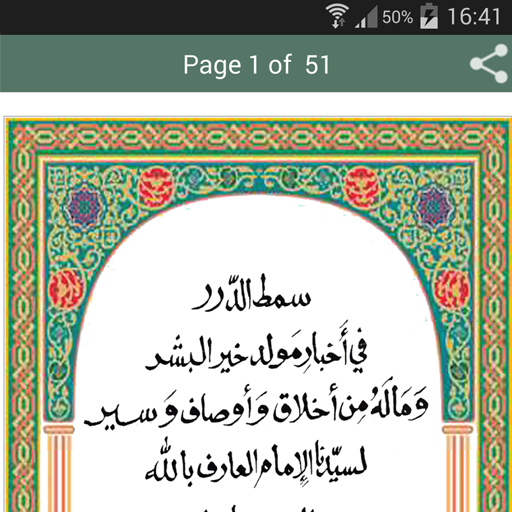 50% 16:41
Page 1 of 51
سمط الدّرر
في أَخبار مَولد خير البشر
وَمَالَهُ مِن أخلاق وَأوصاف وَسير
لسيّدنا الإمام العارف بالله